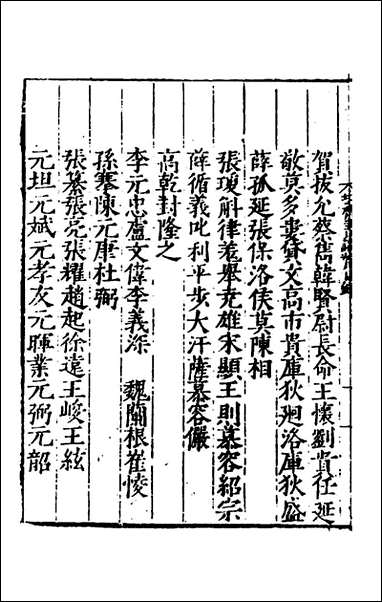 賀拔允蔡儁韓賢尉長命王懷劉貴任延
敬莫多婁貸文高市貴庫狄廻洛庫狄盛
薛孤延張保洛侯莫陳相
張瓊斛律羌舉堯雄宋顯王則慕容紹宗
薛循義叱列平步大汗薩慕容儼
高乾封隆之
李元忠盧文偉李義深 魏蘭根崔㥄
孫搴陳元康杜弼
張纂張亮張耀趙起徐遠王峻王紘
元坦元斌元孝友元暉業元弼元韶